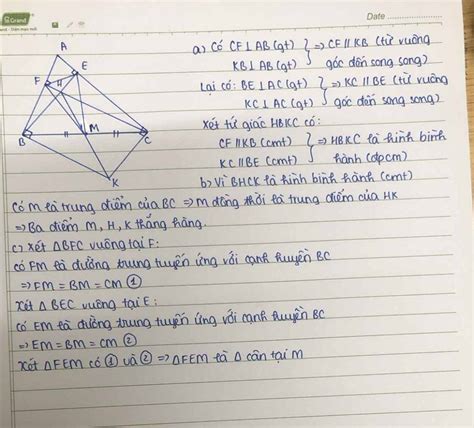 Grand
Date
A
E
F
H
B
M
C
K
a) Có CF ⊥ AB (gt) } => CF // KB (từ vuông
KB ⊥ AB (gt) góc đến song song)
Lại có: BE ⊥ AC (gt) } => KC // BE (từ vuông
KC ⊥ AC (gt) góc đến song song)
Xét tứ giác HBKC có:
CF // KB (cmt) } => HBKC là hình bình
KC // BE (cmt) hành (đpcm)
b) Vì BHCK là hình bình hành (cmt)
Có M là trung điểm của BC => M đồng thời là trung điểm của HK
=> Ba điểm M, H, K thẳng hàng.
c) Xét ΔBFC vuông tại F:
có FM là đường trung tuyến ứng với cạnh huyền BC
=> FM = BM = CM ①
Xét Δ BEC vuông tại E:
có EM là đường trung tuyến ứng với cạnh huyền BC
=> EM = BM = CM ②
Xét ΔFEM có ① và ② => ΔFEM là Δ cân tại M